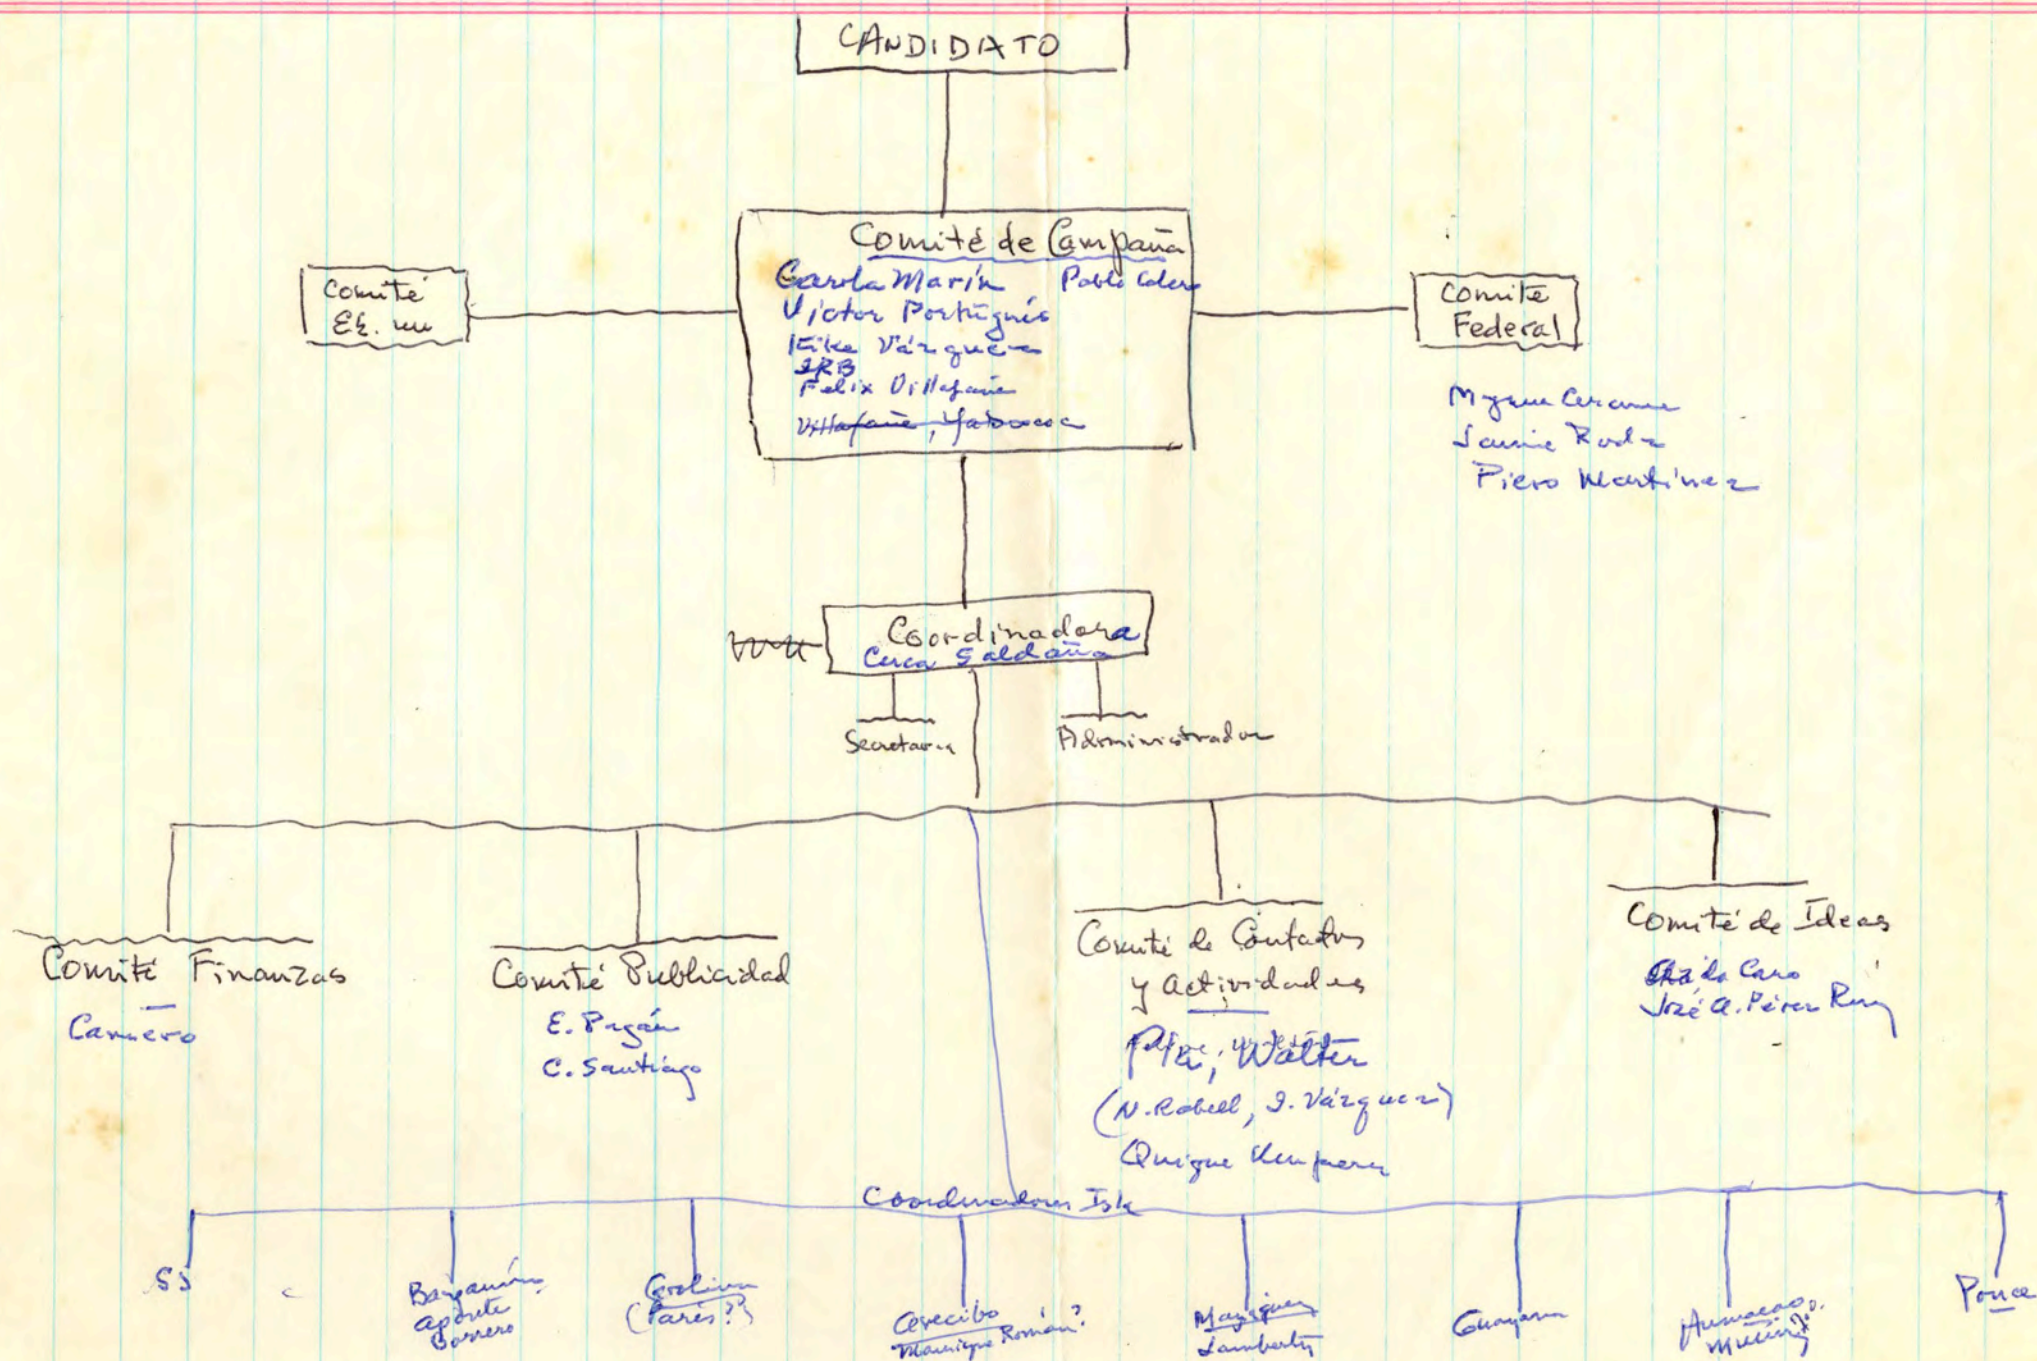 CANDIDATO
Comité de Campaña
Carola Marín Pablo
Victor Portugués
Kike Vázquez
Felix Villafañe
Villafañe, Yabucoa
Comité
Comité
Federal
Jaime
Piero Martínez
Coordinadora
Saldaña
Secretaria
Administrador
Comité Finanzas
Carnero
Comité Publicidad
E. Pagán
C. Santiago
Comité de Contactos
y Actividades
Walter
(N. Robell, I. Vázquez)
Quique
Comité de Ideas
Caro
José A. Pérez
Coordinadores Isla
SJ
Bayamón
Aponte
Borrero
Carolina
(Parés?)
Arecibo
Manrique Román?
Mayagüez
Lamberty
Guayama
Humacao
Ponce